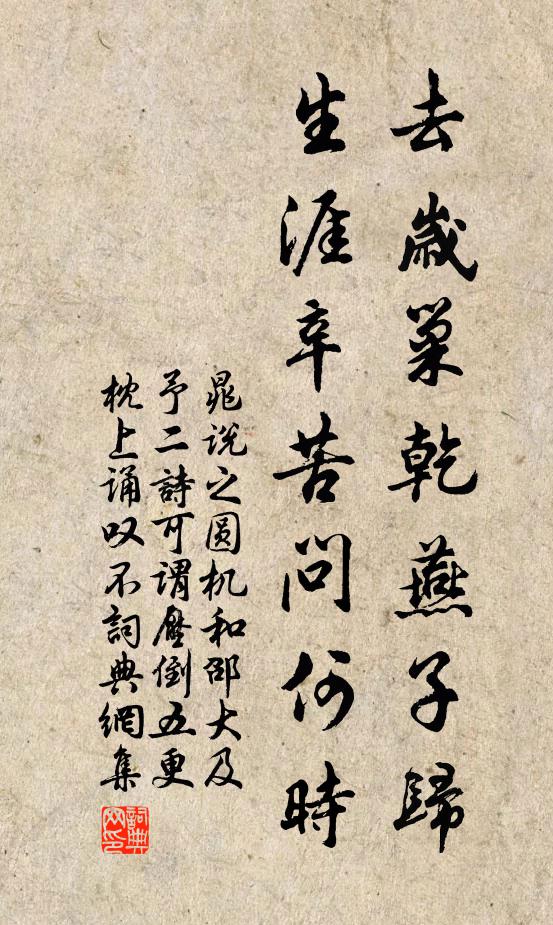 去歲巢乾燕子歸
生涯辛苦問何時
晁說之圓机和邵大及
予二詩可謂壓倒五更
枕上誦叹不詞典網集
詞典
网印